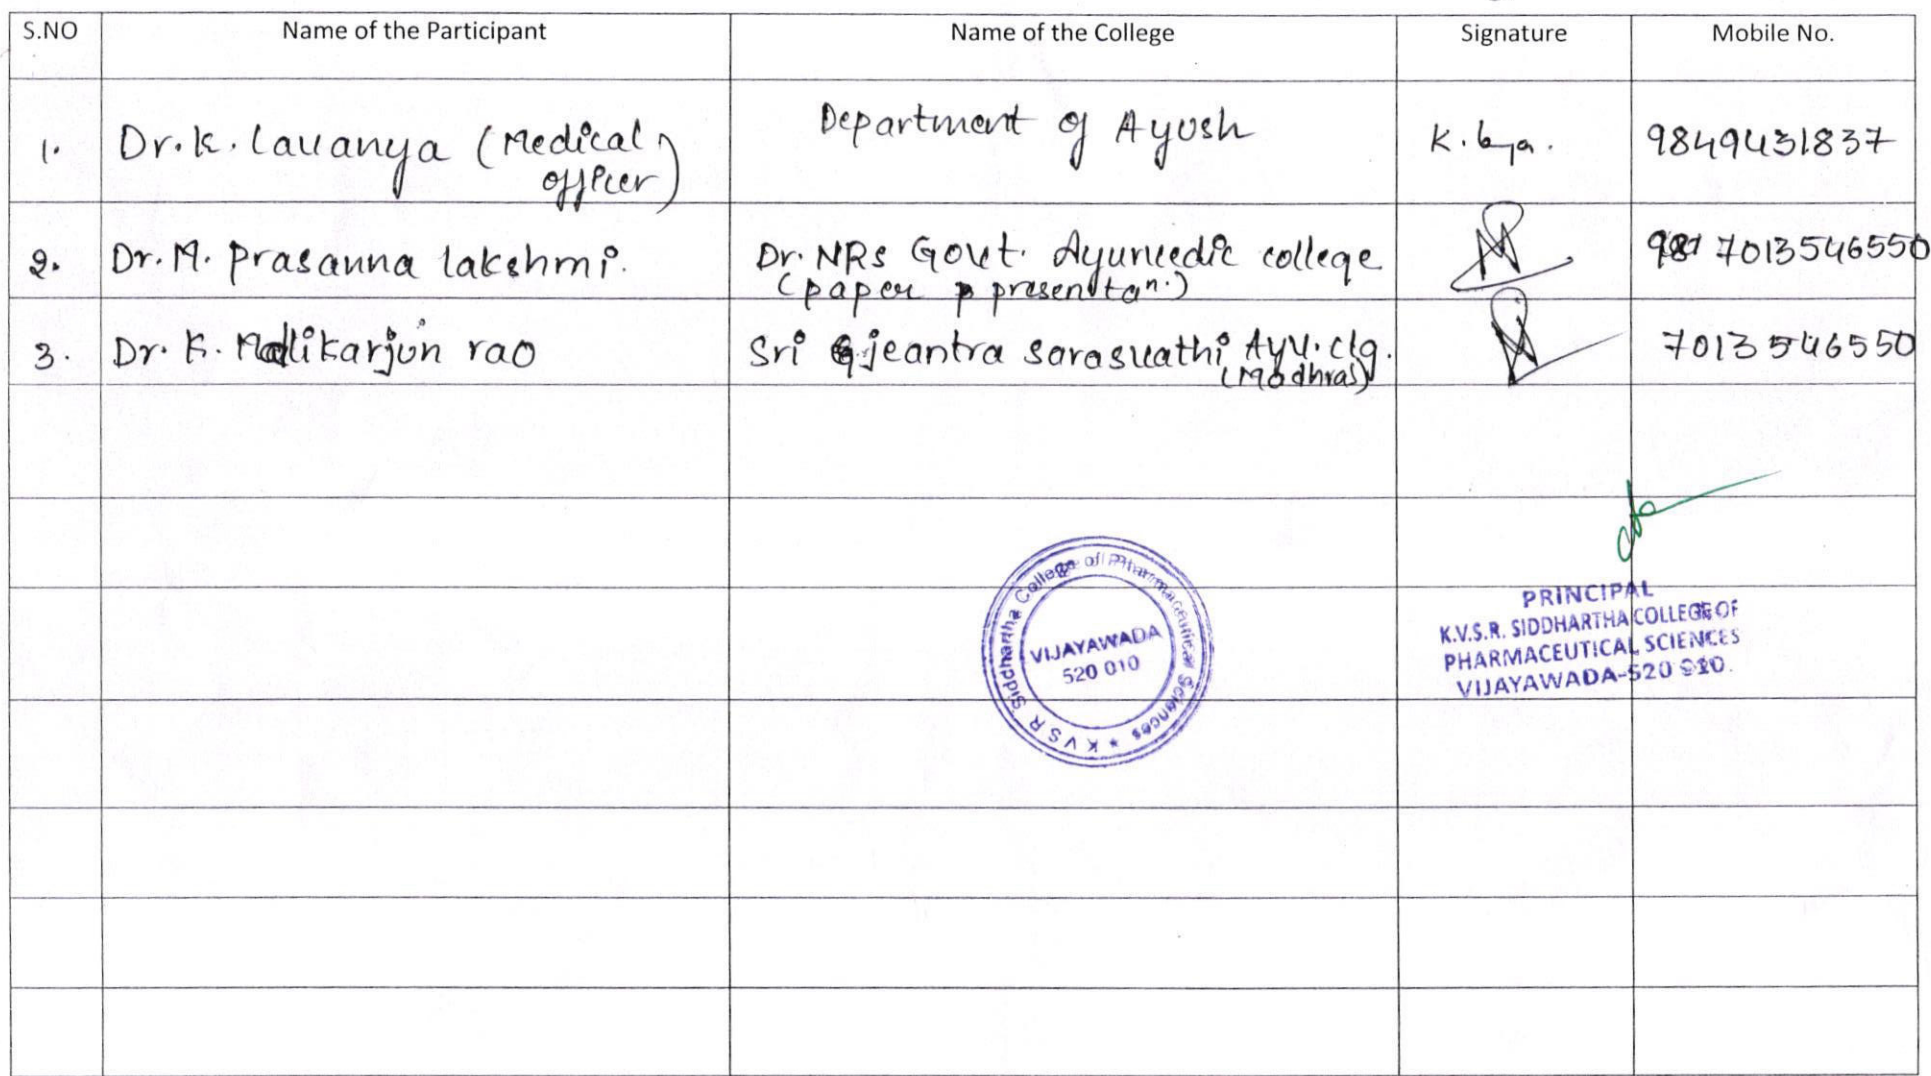 S.NO Name of the Participant Name of the College Signature Mobile No.
1. Dr. K. Lavanya (Medical officer) Department of Ayush K. 9849431837
2. Dr. M. Prasanna lakshmi. Dr. NRS Govt. Ayurvedic college (paper presentan.) 7013546550
3. Dr. K. Mallikarjun rao Sri jeantra saraswathi Ayu. clg. (Madhras) 7013546550
K V S R Siddhartha College of Pharmaceutical Sciences *
VIJAYAWADA
520 010
PRINCIPAL
K.V.S.R. SIDDHARTHA COLLEGE OF
PHARMACEUTICAL SCIENCES
VIJAYAWADA-520 010.